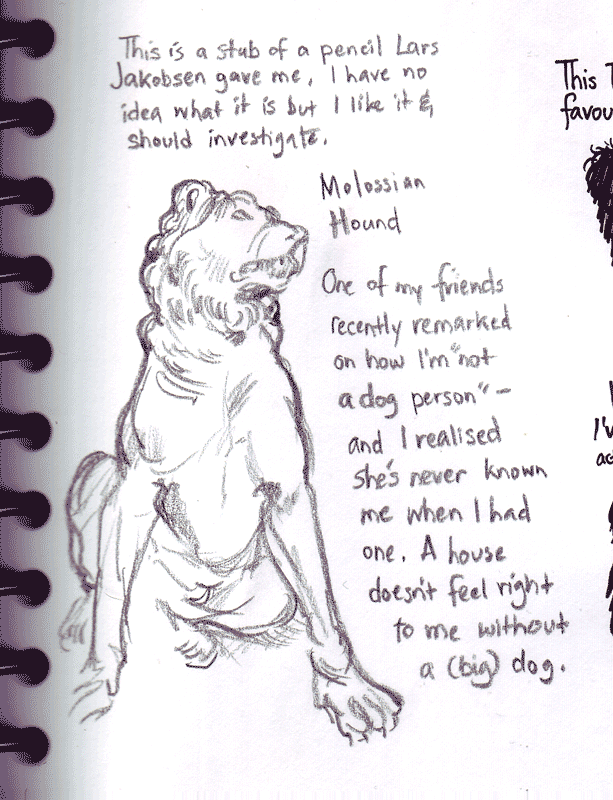 This is a stub of a pencil Lars
Jakobsen gave me. I have no
idea what it is but I like it &
should investigate.
Molossian
Hound
One of my friends
recently remarked
on how I'm "not
a dog person" -
and I realised
she's never known
me when I had
one. A house
doesn't feel right
to me without
a (big) dog.
This
favou
I'v